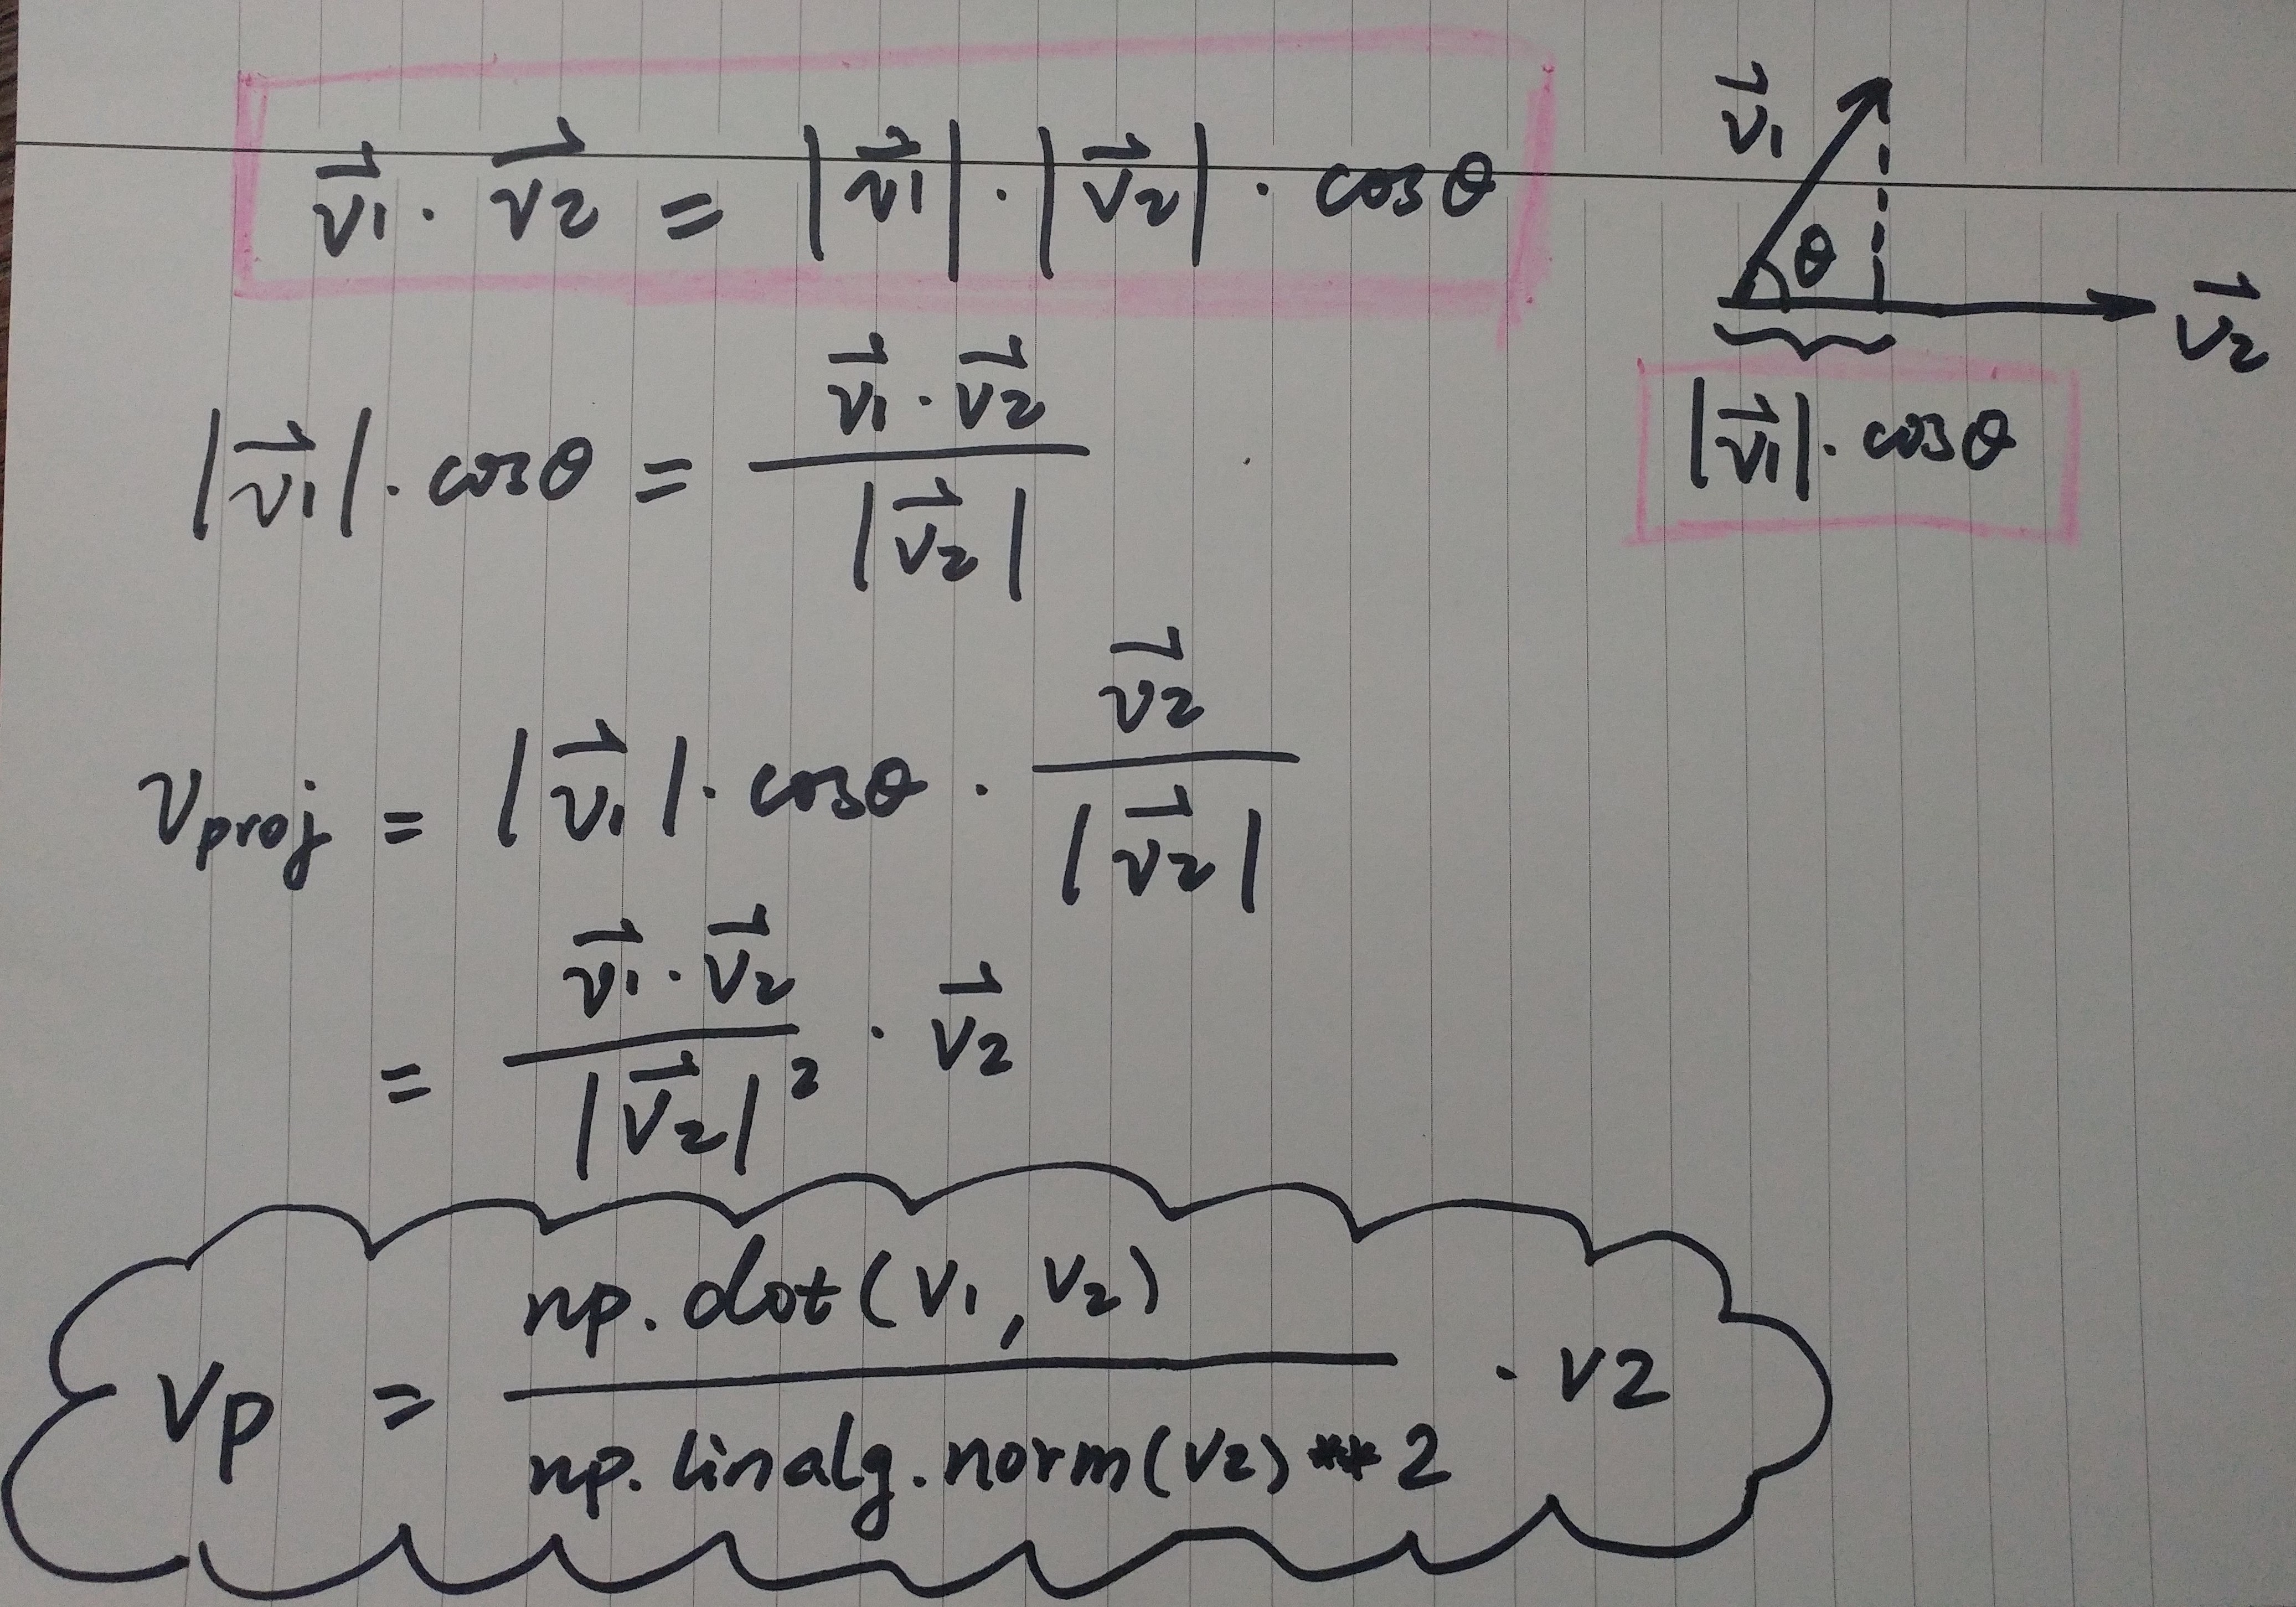 v⃗1 · v⃗2 = |v⃗1| · |v⃗2| · cosθ
v⃗1
θ
v⃗2
|v⃗1| · cosθ
|v⃗1| · cosθ = (v⃗1 · v⃗2) / |v⃗2|
vproj = |v⃗1| · cosθ · v⃗2 / |v⃗2|
= (v⃗1 · v⃗2) / |v⃗2|² · v⃗2
vp = np.dot(v1, v2) / np.linalg.norm(v2)**2 · v2